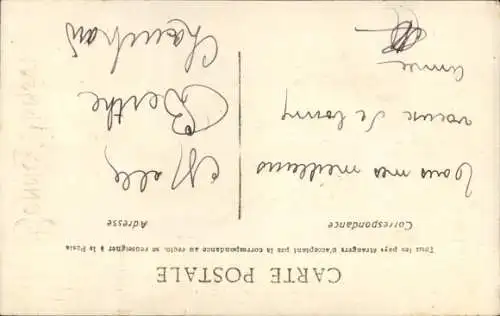 CARTE POSTALE
Tous les pays étrangers n'acceptent pas la correspondance au recto, se renseigner à la Poste
Correspondance
Adresse
Tous mes meilleurs
vœux de bonne
année
Melle
Berthe